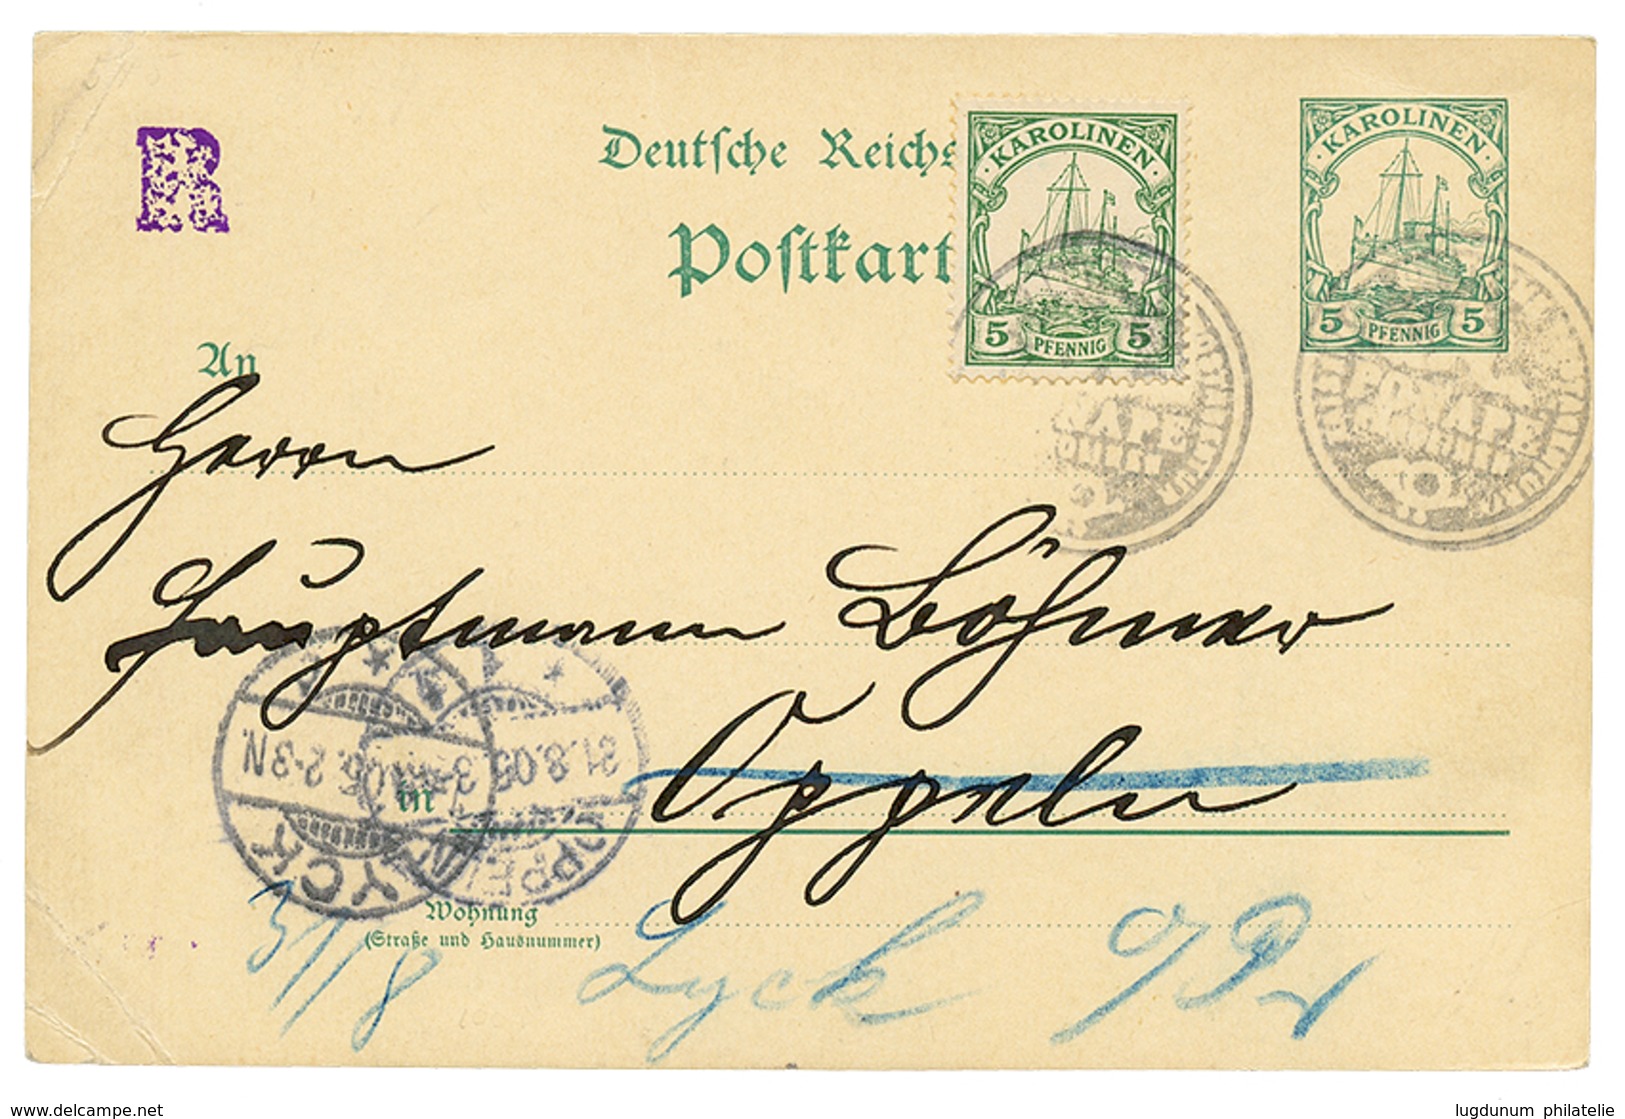 R
Deutsche Reichs
Postkart
KAROLINEN
5 PFENNIG 5
KAROLINEN
5 PFENNIG 5
PONAPE
An
Herrn
Hauptmann Böhmer
in Oppeln
21.8.05
2-3N.
LYCK
OPPELN
Wohnung
(Straße und Hausnummer)
31/8 Lyck
delcampe.net
lugdunum philatelie